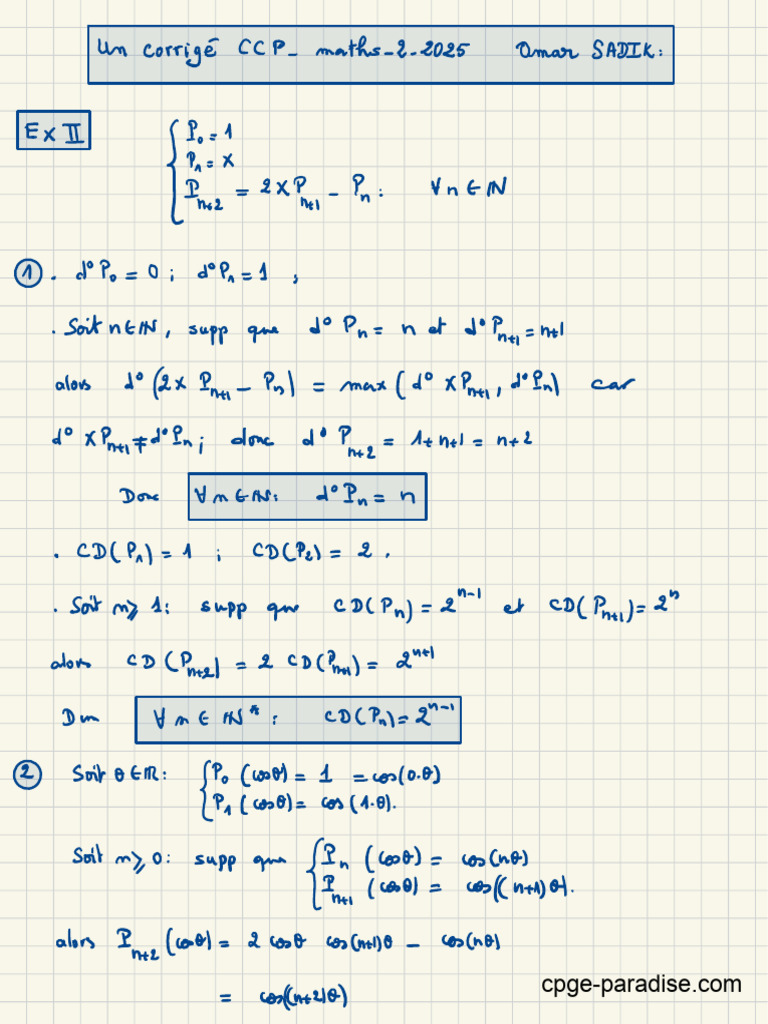 Un corrigé CCP_ maths_2_2025 Omar SADIK:
Ex II
P₀ = 1
P₁ = X
Pₙ₊₂ = 2XPₙ₊₁ - Pₙ : ∀n∈ℕ
① . d°P₀ = 0 ; d°P₁ = 1 ,
. Soit n∈ℕ, supp que d° Pₙ = n et d°Pₙ₊₁ = n+1
alors d°(2X Pₙ₊₁ - Pₙ) = max(d° XPₙ₊₁, d°Pₙ) car
d° XPₙ₊₁ ≠ d°Pₙ ; donc d° Pₙ₊₂ = 1+n+1 = n+2
Donc ∀n∈ℕ: d°Pₙ = n
. CD(P₁) = 1 ; CD(P₂) = 2 .
. Soit n⩾1: supp que CD(Pₙ) = 2ⁿ⁻¹ et CD(Pₙ₊₁) = 2ⁿ
alors CD(Pₙ₊₂) = 2 CD(Pₙ₊₁) = 2ⁿ⁺¹
Dnc ∀n∈ℕ*: CD(Pₙ) = 2ⁿ⁻¹
② Soit θ∈ℝ: P₀(cosθ) = 1 = cos(0.θ)
P₁(cosθ) = cos(1.θ).
Soit n⩾0: supp que Pₙ(cosθ) = cos(nθ)
Pₙ₊₁(cosθ) = cos((n+1)θ).
alors Pₙ₊₂(cosθ) = 2 cosθ cos(n+1)θ - cos(nθ)
= cos((n+2)θ)
cpge-paradise.com